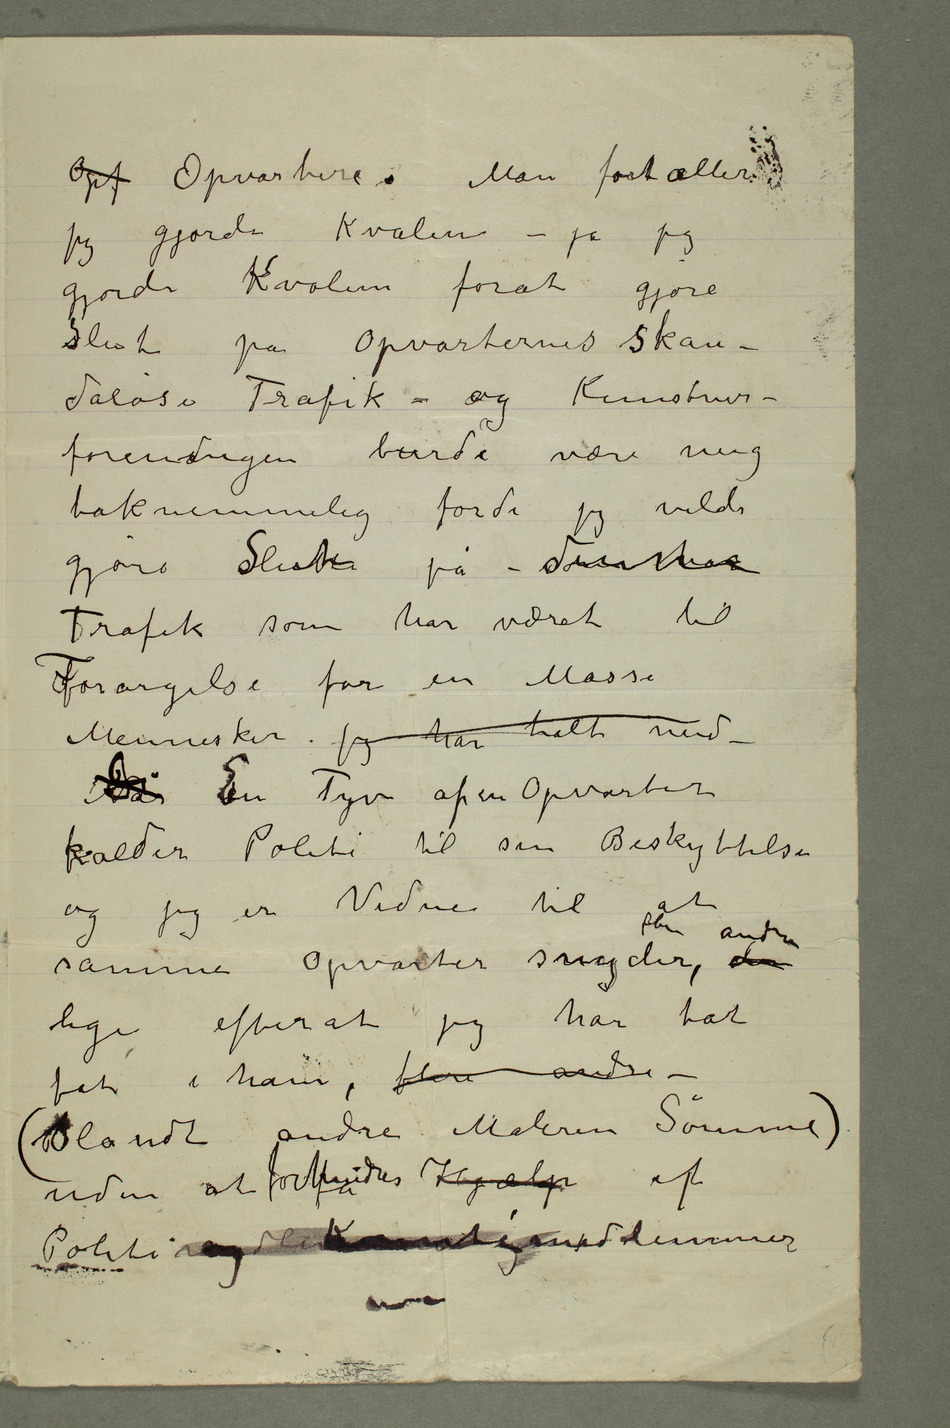 Opf Opvartere. Man fortæller
jeg gjorde Kvalm – ja jeg
gjorde Kvalm forat gjøre
Slut på Opvarternes Skan-
daløse Trafik – og Kunstner-
foreningen burde være mig
taknemmelig fordi jeg vilde
gjøre Slut på –
Trafik som har været til
Forargelse for en Masse
Mennesker. jeg har talt med –
Når En Tyv af en Opvarter
kalder Politi til sin Beskyttelse
og jeg er Vidne til at
samme Opvarter snyder, flere andre
lige efterat jeg har tat
fat i ham, flere andre –
(Blandt andre Maleren Sømme)
uden at forhindres få Hjælp af
Politi og Komitemedlemmer